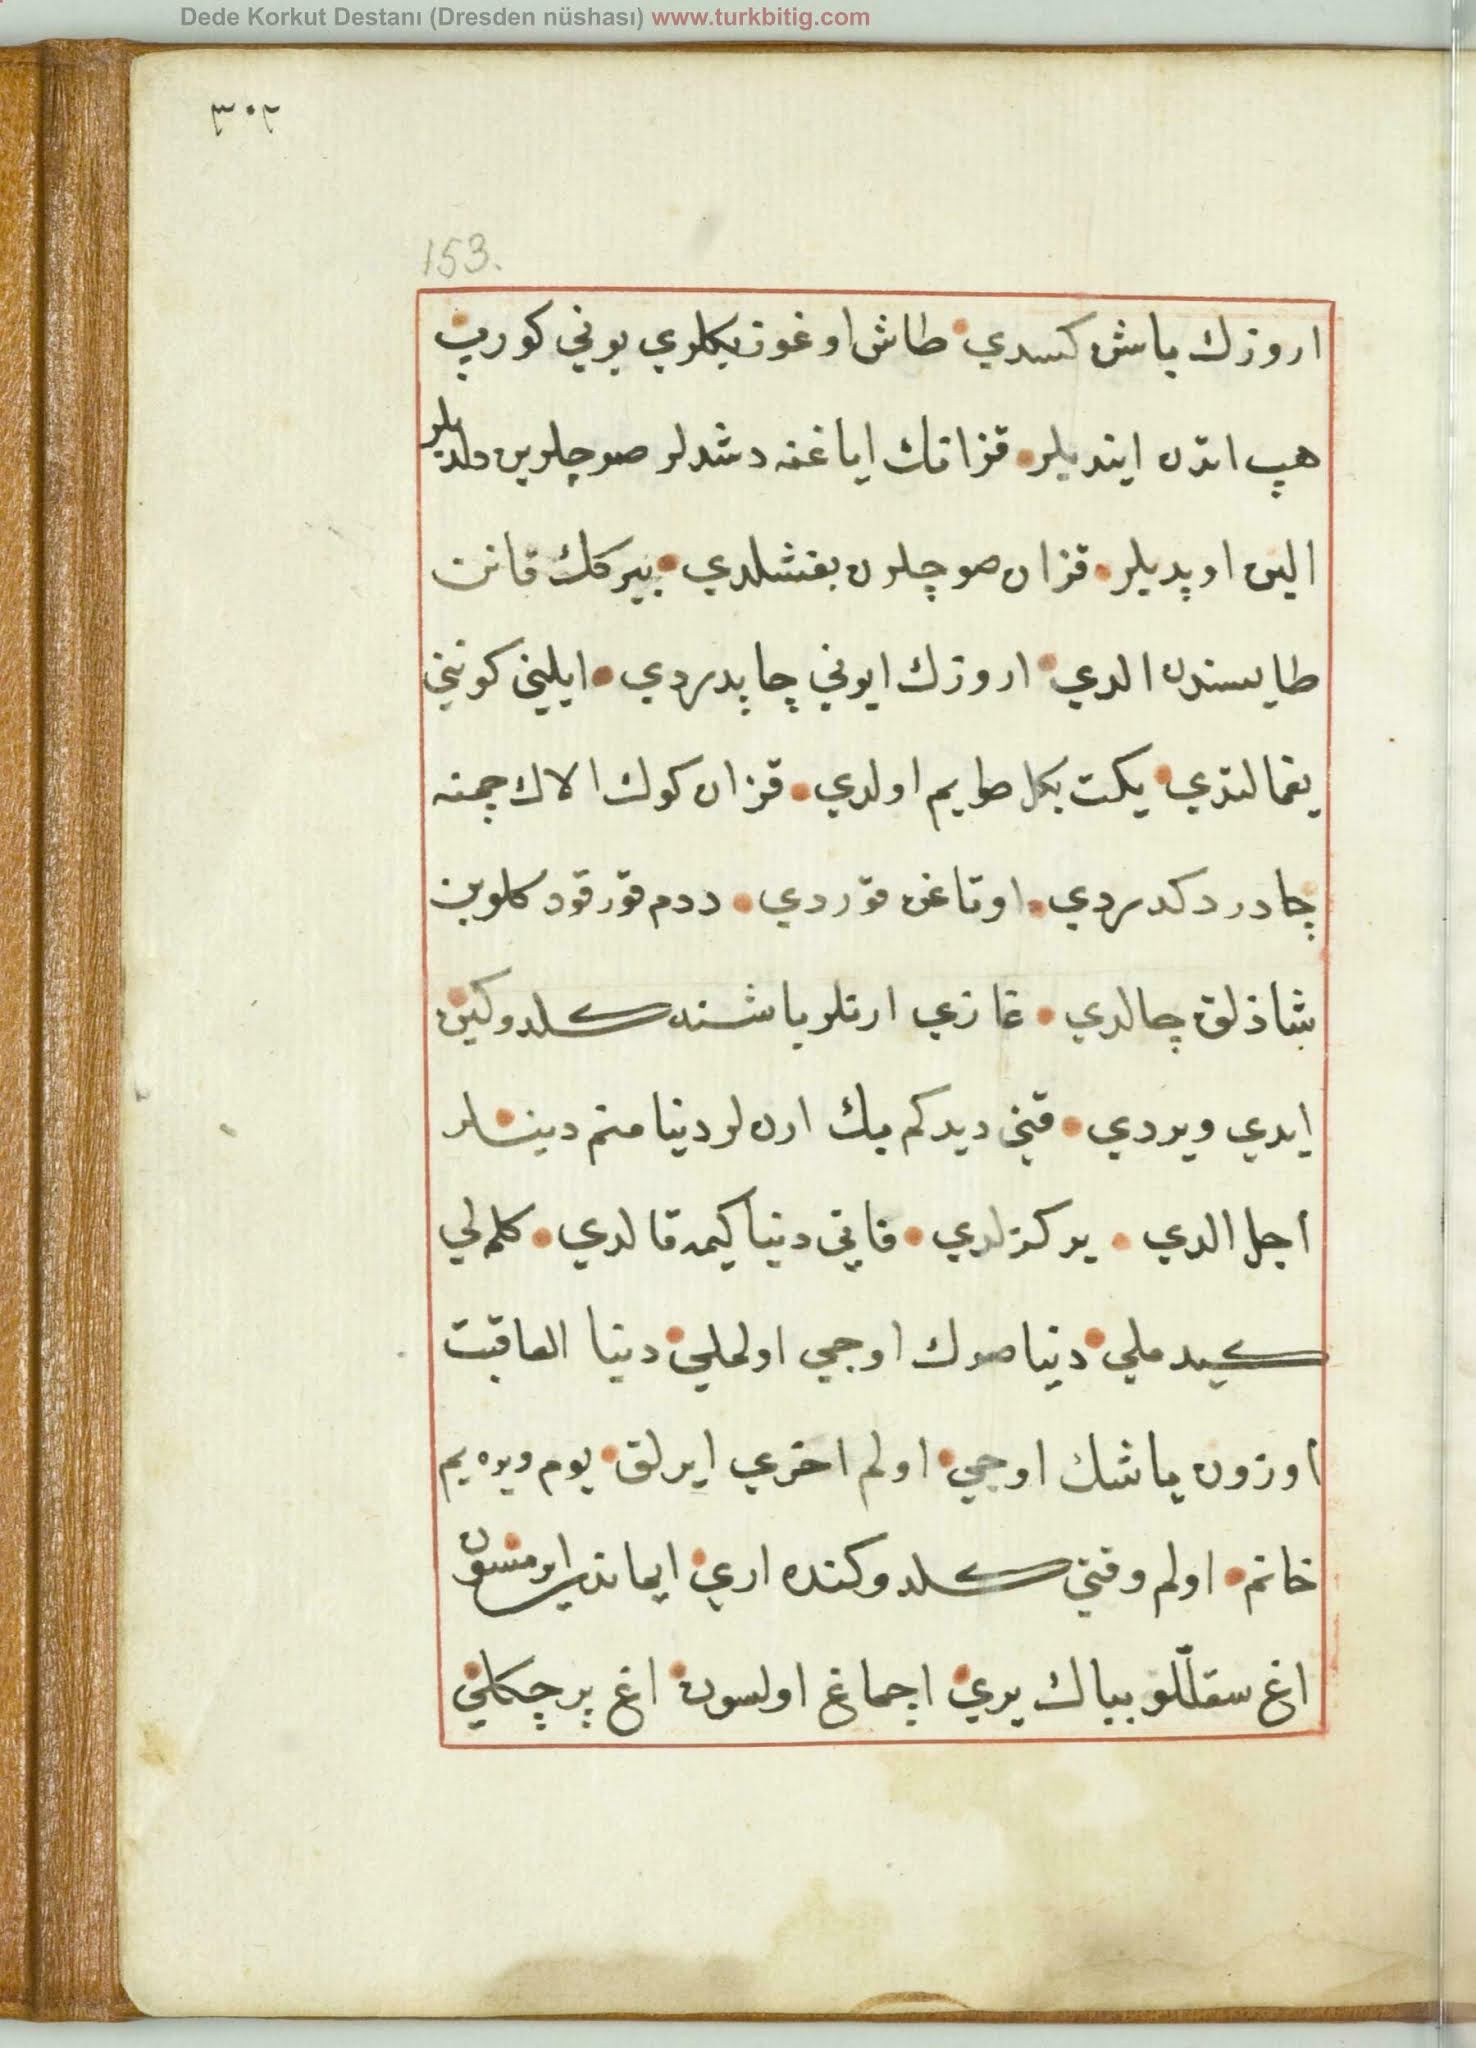 Dede Korkut Destanı (Dresden nüshası) www.turkbitig.com
٣٠٢
153.
اروزك باشن كسدي طاش اوغوز بكلري بوني كوريب
هپ اتدن اينديلر قزانك اياغنه دشدلر صوچلرين دلديلر
الين اوپديلر قزان صوچلرن بغشلدي بيركك قانن
طاييسندن الدي اروزك ايوني چاپدردي ايليني كونيني
يغمالتدي يكت بكلر طويم اولدي قزان كوك الاك چمنه
چادر دكدردي اوتاغن قوردي ددم قورقود كلوبن
شاذلق چالدي غازي ارنلر باشنه كلدوكين
ايدي ويردي قني ديدكم بك ارن لر دنيا منم دينلر
اجل الدي ير كزلدي فاني دنيا كيمه قالدي كلملي
كيدملي دنيا صوك اوجي اولملي دنيا العاقبت
اوزون ياشك اوجي اولم اخري ايرلق يوم ويره يم
خانم اولم وقتي كلدوكنده اري ايماندن ايرمسون
اغ سقللو بباك يري اجماغ اولسون اغ پرچكلي